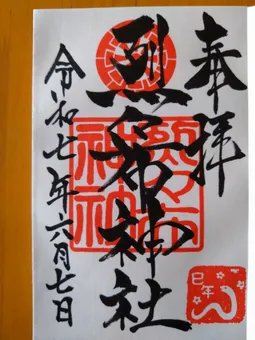 奉拝
烈々布神社
令和七年六月七日
巳年